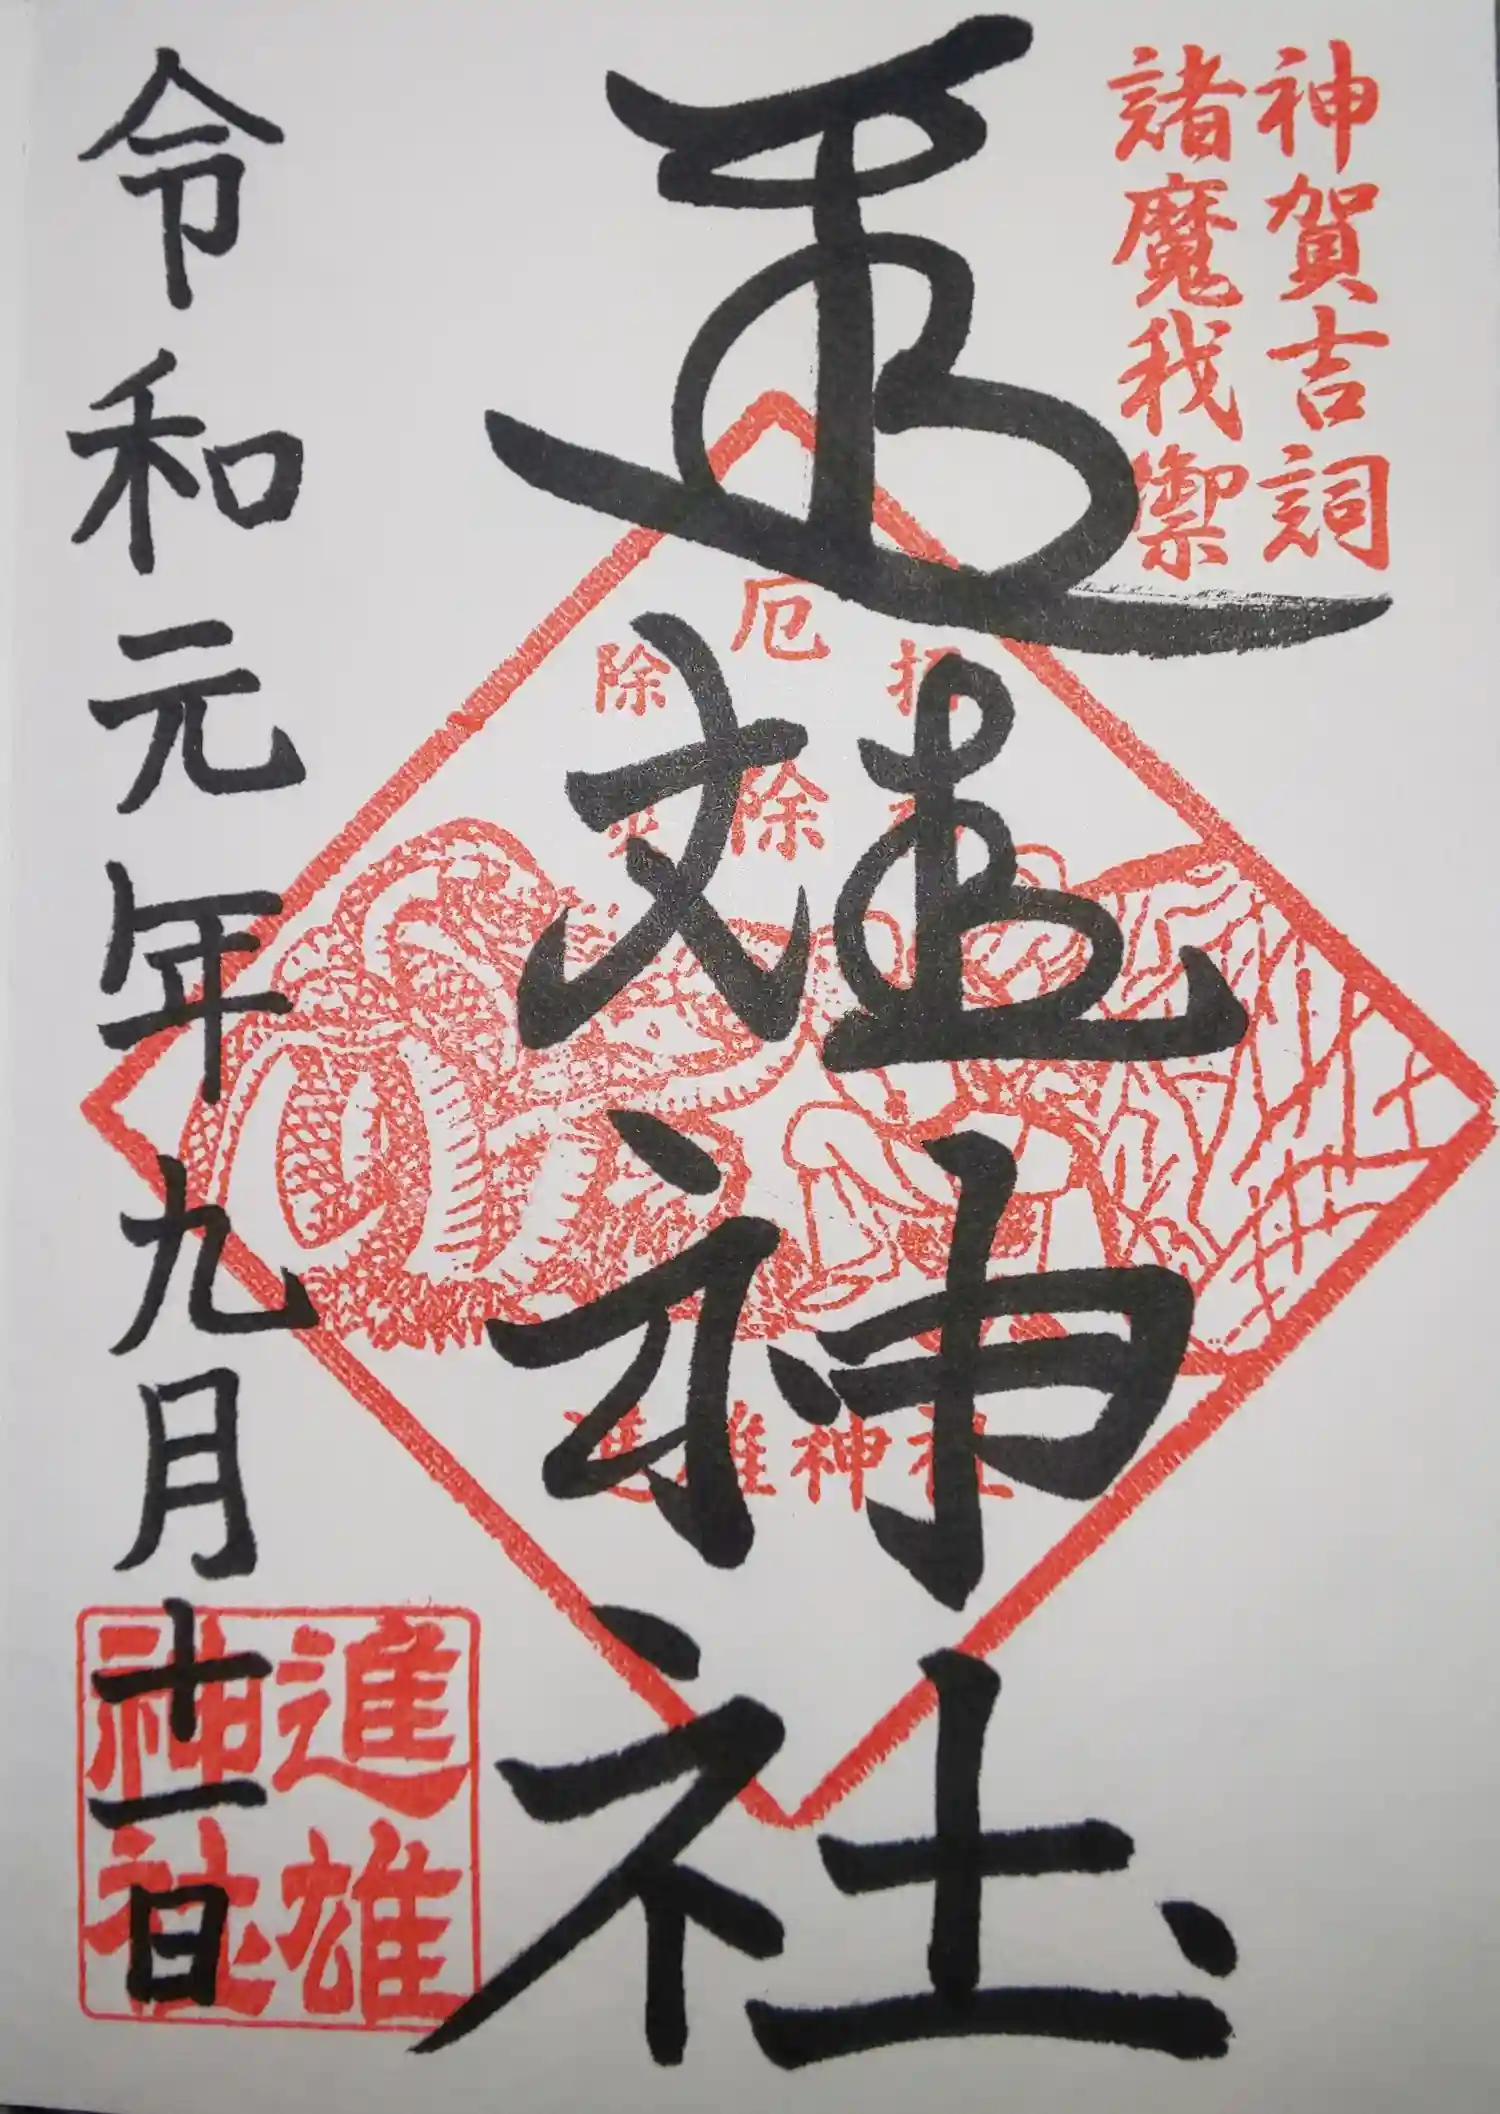 神賀吉詞
諸魔我禦
進雄神社
招福
厄除
除災
進雄神社
令和元年九月十一日
進雄
神社